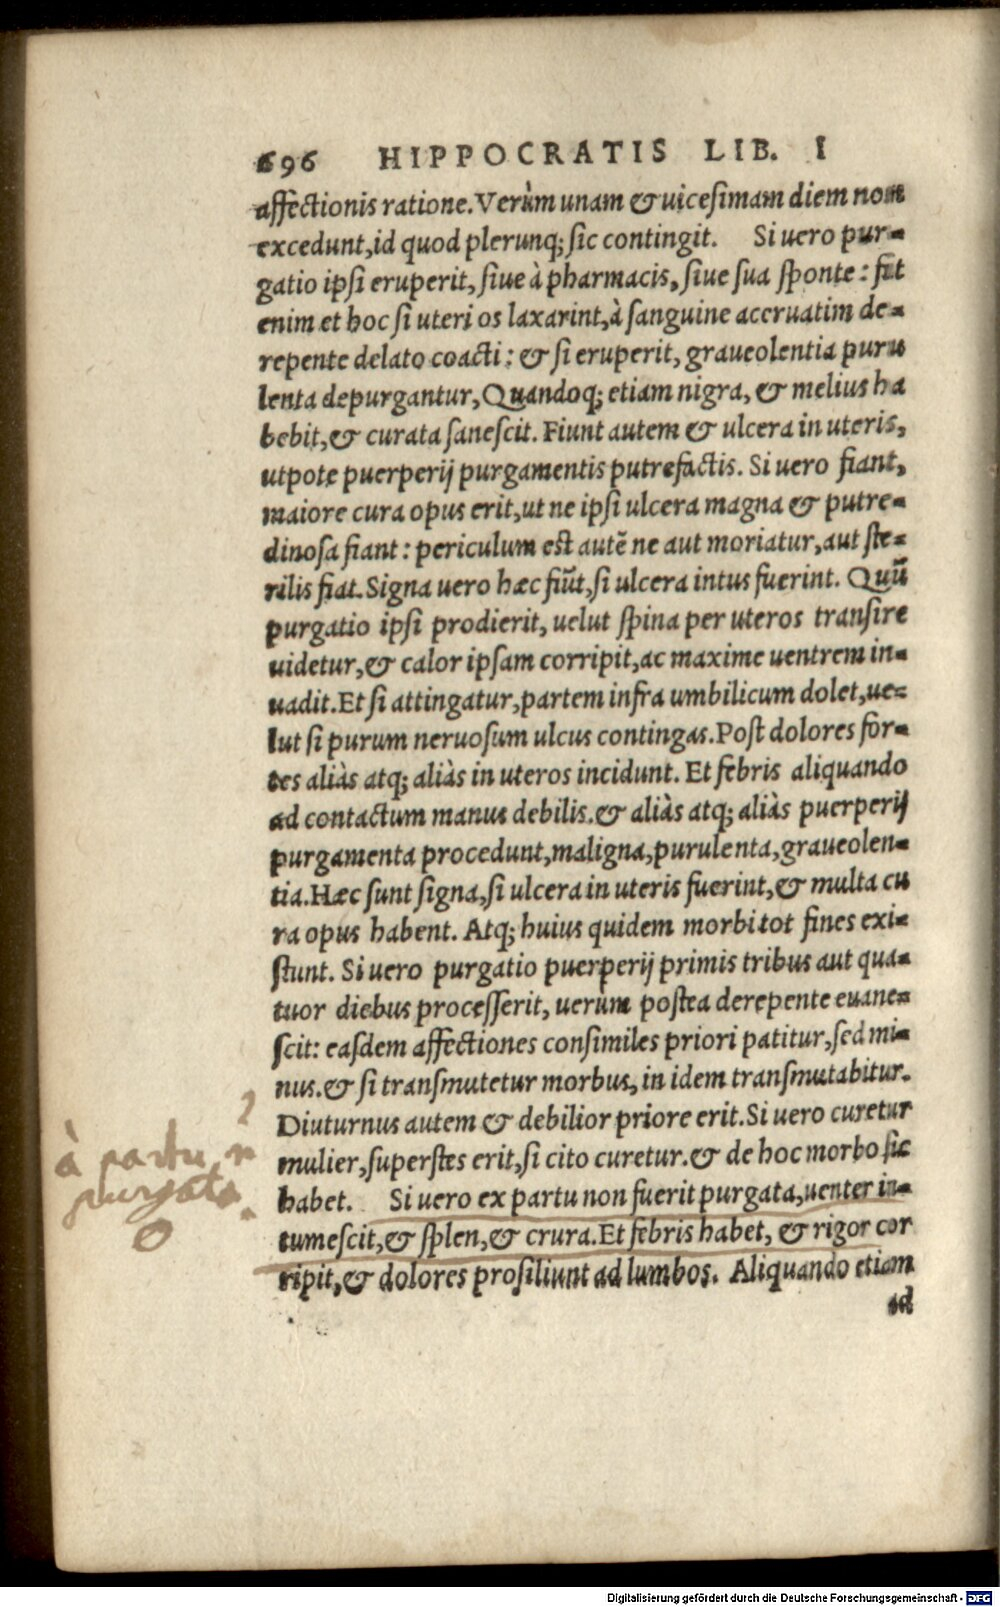 696 HIPPOCRATIS LIB. I
affectionis ratione. Verùm unam & uicesimam diem non
excedunt, id quod plerunq; sic contingit. Si uero pur-
gatio ipsi eruperit, siue à pharmacis, siue sua sponte: fit
enim et hoc si uteri os laxarint, à sanguine aceruatim de-
repente delato coacti: & si eruperit, graueolentia puru
lenta depurgantur, Quandoq; etiam nigra, & melius ha
bebit, & curata sanescit. Fiunt autem & ulcera in uteris,
utpote puerperij purgamentis putrefactis. Si uero fiant,
maiore cura opus erit, ut ne ipsi ulcera magna & putre-
dinosa fiant: periculum est autẽ ne aut moriatur, aut ste-
rilis fiat. Signa uero hæc fiũt, si ulcera intus fuerint. Quũ
purgatio ipsi prodierit, uelut spina per uteros transire
uidetur, & calor ipsam corripit, ac maxime uentrem in-
uadit. Et si attingatur, partem infra umbilicum dolet, ue-
lut si purum neruosum ulcus contingas. Post dolores for-
tes aliàs atq; aliàs in uteros incidunt. Et febris aliquando
ad contactum manus debilis. & aliàs atq; aliàs puerperij
purgamenta procedunt, maligna, purulenta, graueolen-
tia. Hæc sunt signa, si ulcera in uteris fuerint, & multa cu
ra opus habent. Atq; huius quidem morbi tot fines exi-
stunt. Si uero purgatio puerperij primis tribus aut qua-
tuor diebus processerit, uerùm postea derepente euane-
scit: easdem affectiones consimiles priori patitur, sed mi-
nus. & si transmutetur morbus, in idem transmutabitur.
Diuturnus autem & debilior priore erit. Si uero curetur
mulier, superstes erit, si cito curetur. & de hoc morbo sic
habet. Si uero ex partu non fuerit purgata, uenter in-
tumescit, & splen, & crura. Et febris habet, & rigor cor
ripit, & dolores prosiliunt ad lumbos. Aliquando etiam
ad
à partu n
purgata
Digitalisierung gefördert durch die Deutsche Forschungsgemeinschaft - DFG